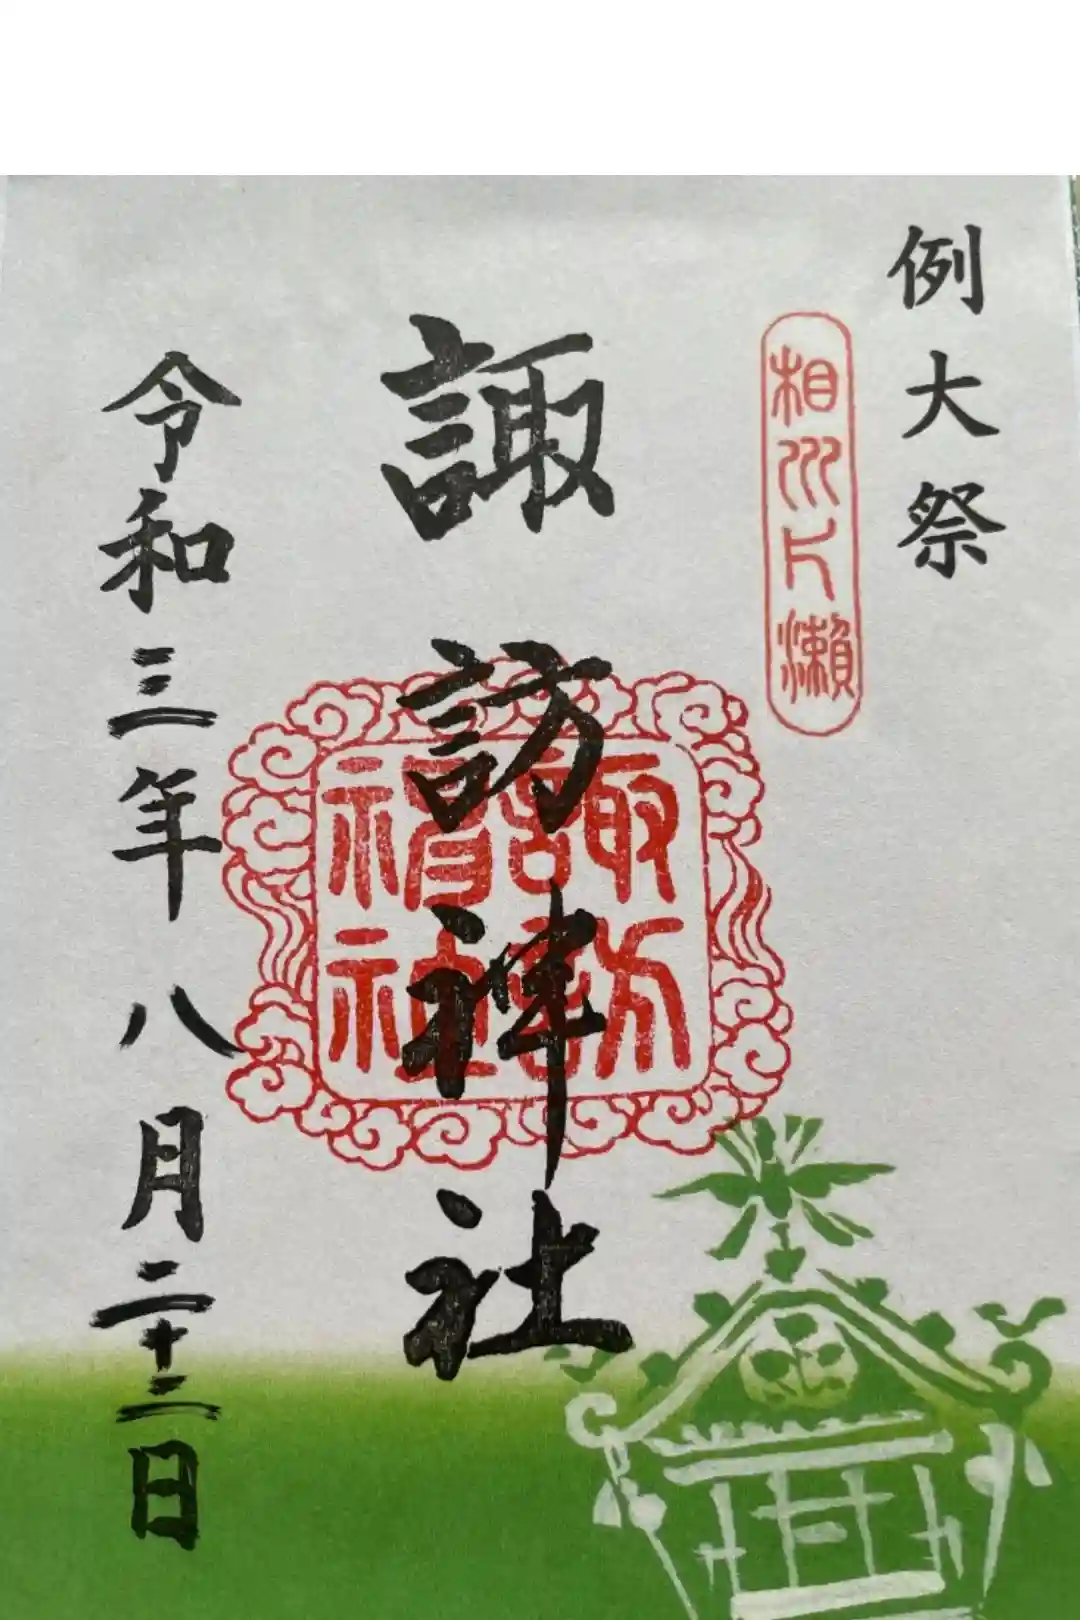 例大祭
相州片瀬
諏訪神社
諏訪
神社
令和三年八月二十三日